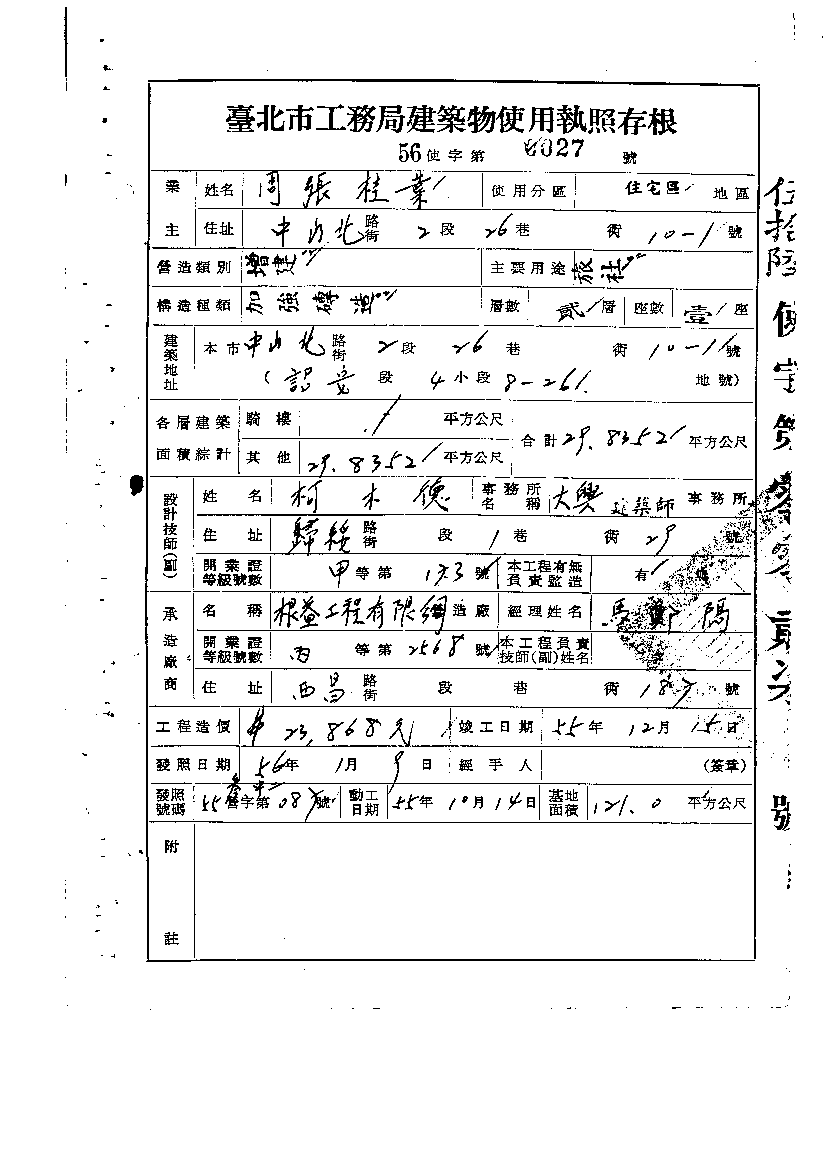 臺北市工務局建築物使用執照存根
56使字第 0027 號
業主 姓名 周張桂葉 使用分區 住宅區 地區
住址 中山北路街 2段 26巷 衖 10-1號
營造類別 增建 主要用途 旅社
構造種類 加強磚造 層數 貳層 座數 壹座
建築地址 本市中山北路街 2段 26巷 衖 10-1號
( 段 4小段 8-261 地號)
各層建築面積綜計 騎樓 平方公尺 合計29.8352平方公尺
其他 29.8352平方公尺
設計技師(副) 姓名 柯木德 事務所名稱 大興建築師事務所
住址 歸綏路街 段 1巷 衖 29號
開業證等級號數 甲等第 173號 本工程有無負責監造 有
承造廠商 名稱 根益工程有限 造廠 經理姓名 馬
開業證等級號數 丙等第2568號 本工程負責技師(副)姓名
住址 西昌路街 段 巷 衖 187號
工程造價 23,868元 竣工日期 55年12月15日
發照日期 56年1月9日 經手人 (簽章)
發照號碼 55營字第08 號 動工日期 55年10月14日 基地面積 121.0平方公尺
附註
伍拾陸使字第零零貳柒號